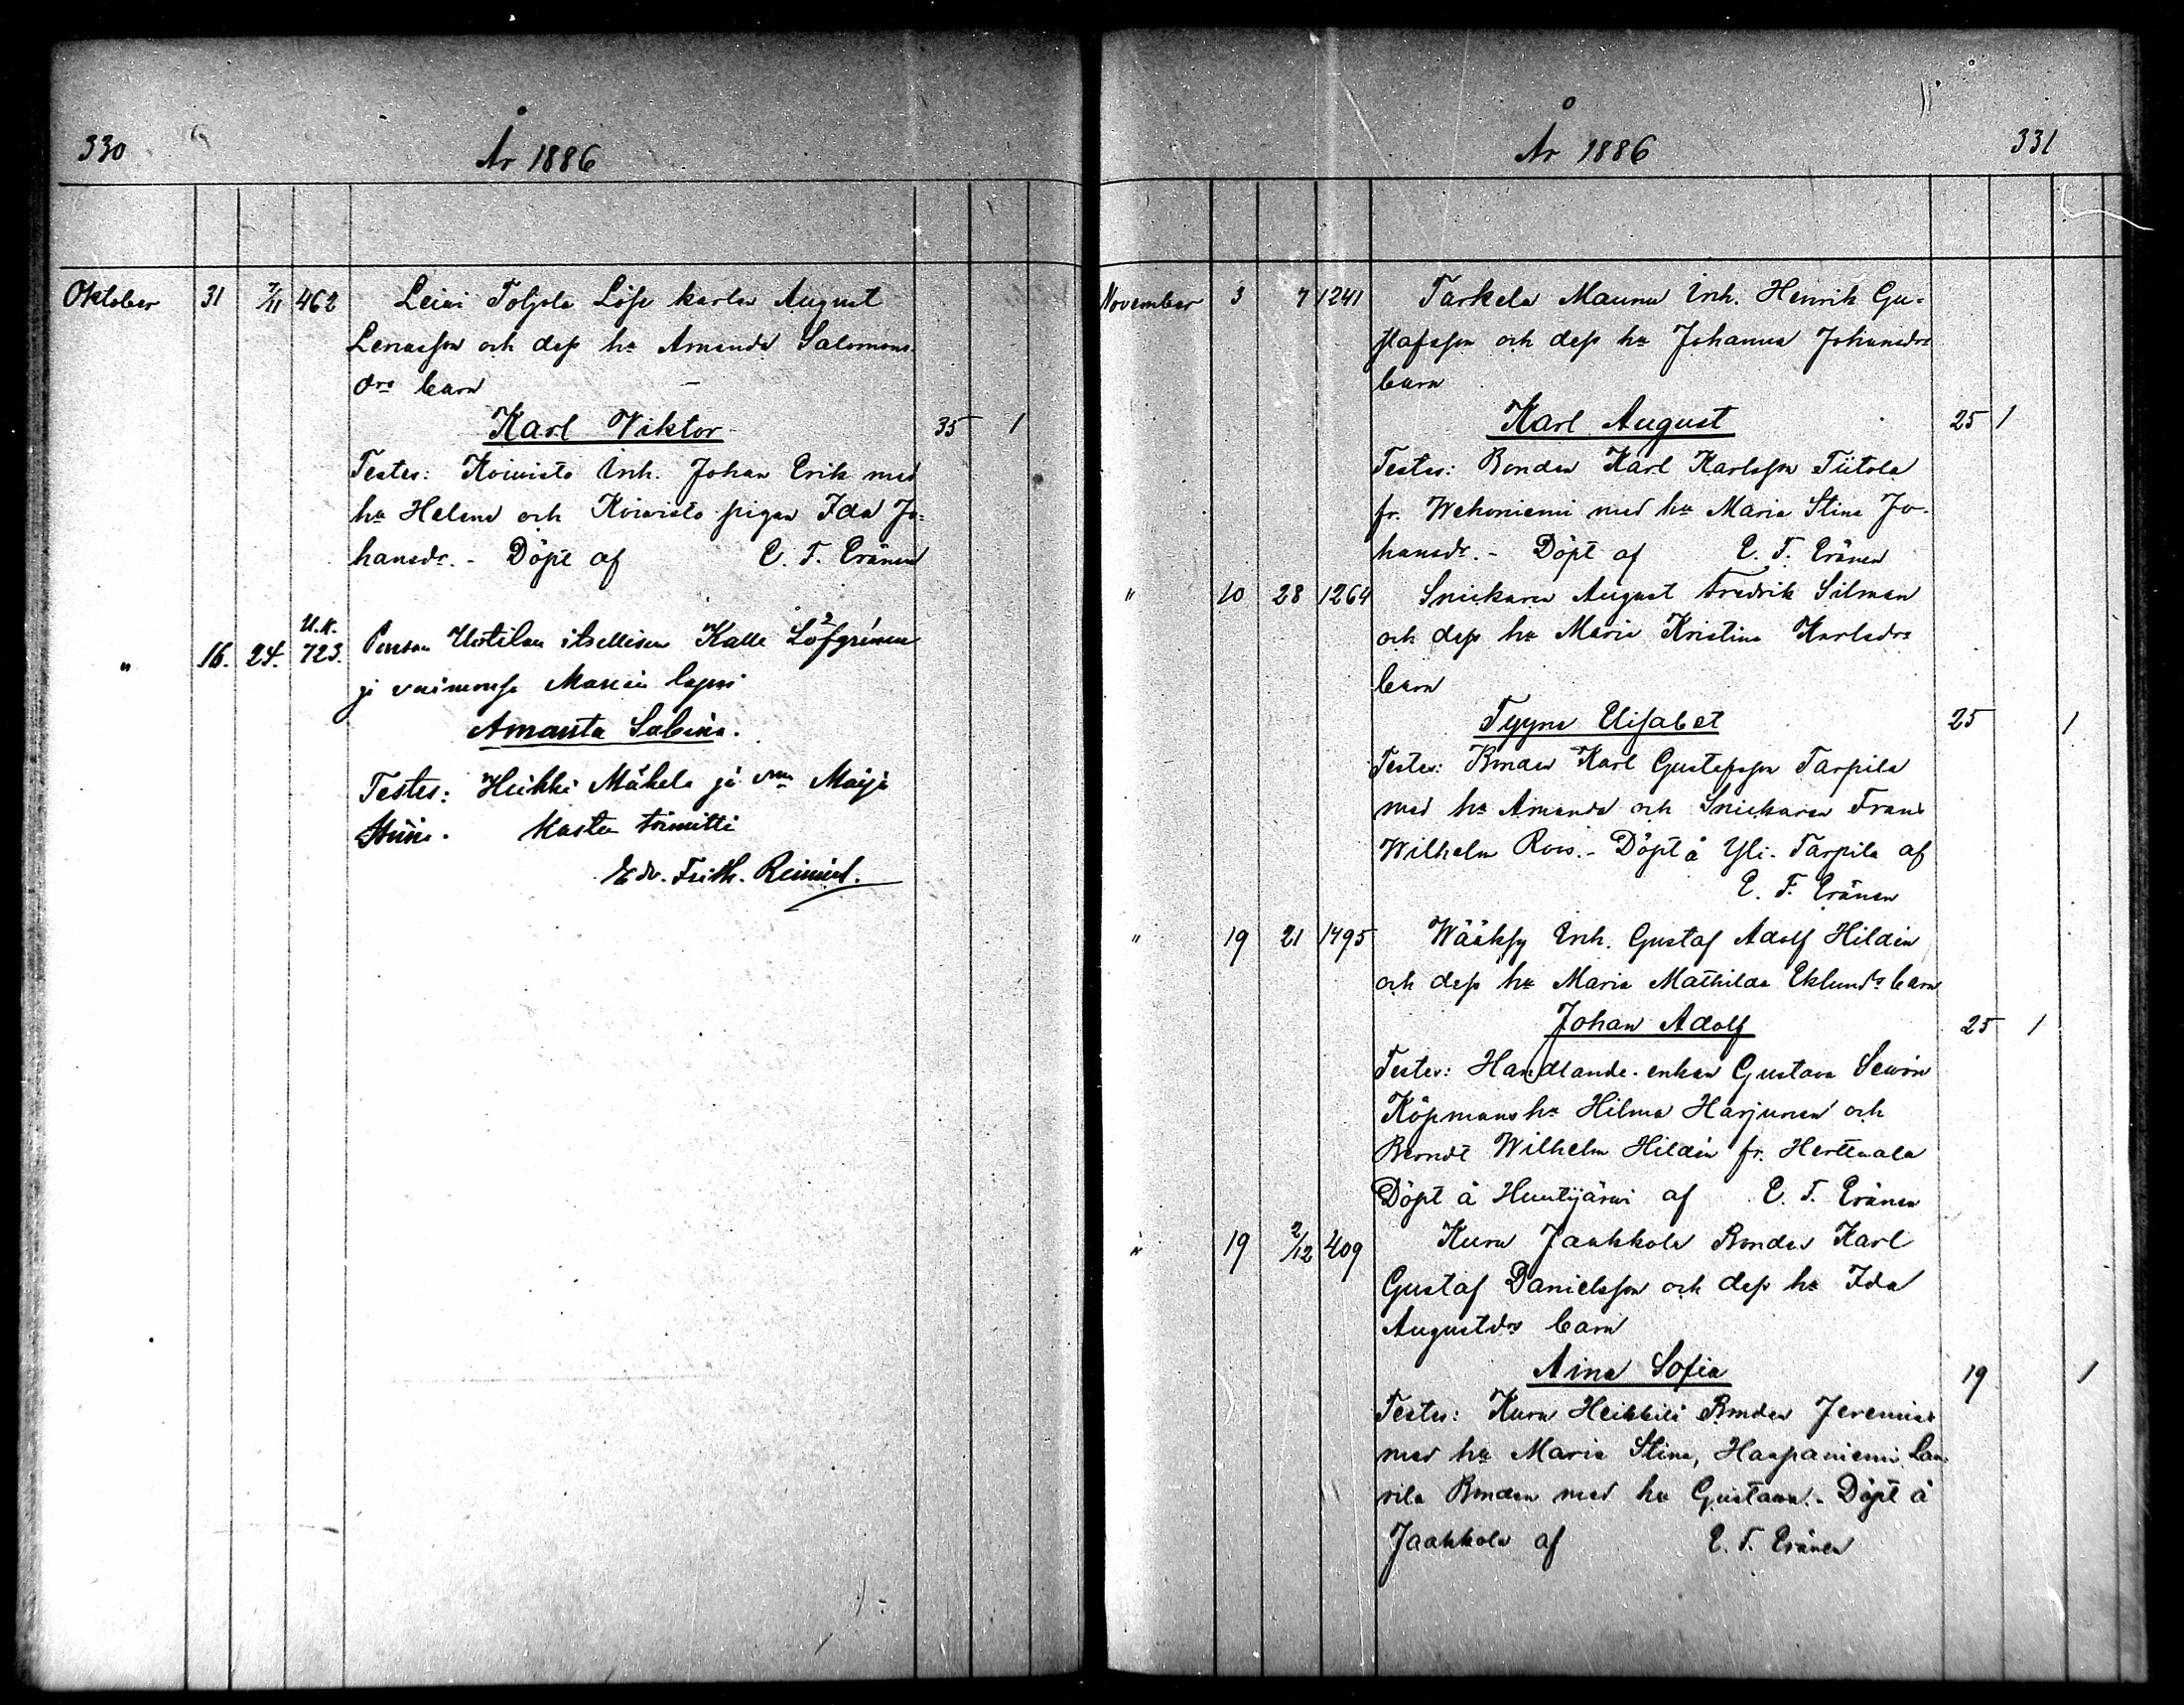 330
År 1886
Oktober 31 7/11 462 Leini Toljola Löse karlen August
Lenasson och dess hu Amanda Salomons
drs barn
Karl Viktor 35 1
Testes: Koivisto Inh. Johan Erik med
hu Helena och Koivisto pigan Ida Jo-
hansdr. - Döpt af E. F. Eränen
" 16. 24. U.K. 723. Uotilan itsellisen Kalle Löfgrénin
ja vaimonsa Marian lapsi
Amanta Sabina.
Testes: Heikki Mäkelä ja vmo Maija
Stiina. Kasteen toimitti
Edv. Frith. Reinius.
År 1886
331
November 3 7 1241 Tarkela Maunu Inh. Henrik Gu-
stafsson och dess hu Johanna Johansdrs
barn
Karl August 25 1
Testes: Bonden Karl Karlsson Tiitola
fr. Wehoniemi med hu Maria Stina Jo-
hansdr. - Döpt af E. F. Eränen
" 10 28 1264 Snickaren August Fredrik Silman
och dess hu Maria Kristina Karlsdrs
barn
Tyyne Elisabet 25 1
Testes: Bonden Karl Gustafsson Tarpila
med hu Amanda och Snickaren Frans
Wilhelm Roos. - Döpt å Yli-Tarpila af
E. F. Eränen
" 19 21 1495 Wääksy Inh. Gustaf Adolf Hildén
och dess hu Maria Mathilda Eklunds barn
Johan Adolf 25 1
Testes: Handlande-enkan Gustava Sevón
Köpmans hu Hilma Harjunen och
Berndt Wilhelm Hildén fr. Herttuala
Döpt å Huutijärvi af E. F. Eränen
" 19 2/12 409 Kuru Jaakkola Bonden Karl
Gustaf Danielsson och dess hu Ida
Augustdrs barn
Aina Sofia 19 1
Testes: Kuru Heikkilä Bonden Jeremias
med hu Maria Stina, Haapaniemi Lau-
rila Bonden med hu Gustava. - Döpt å
Jaakkola af E. F. Eränen